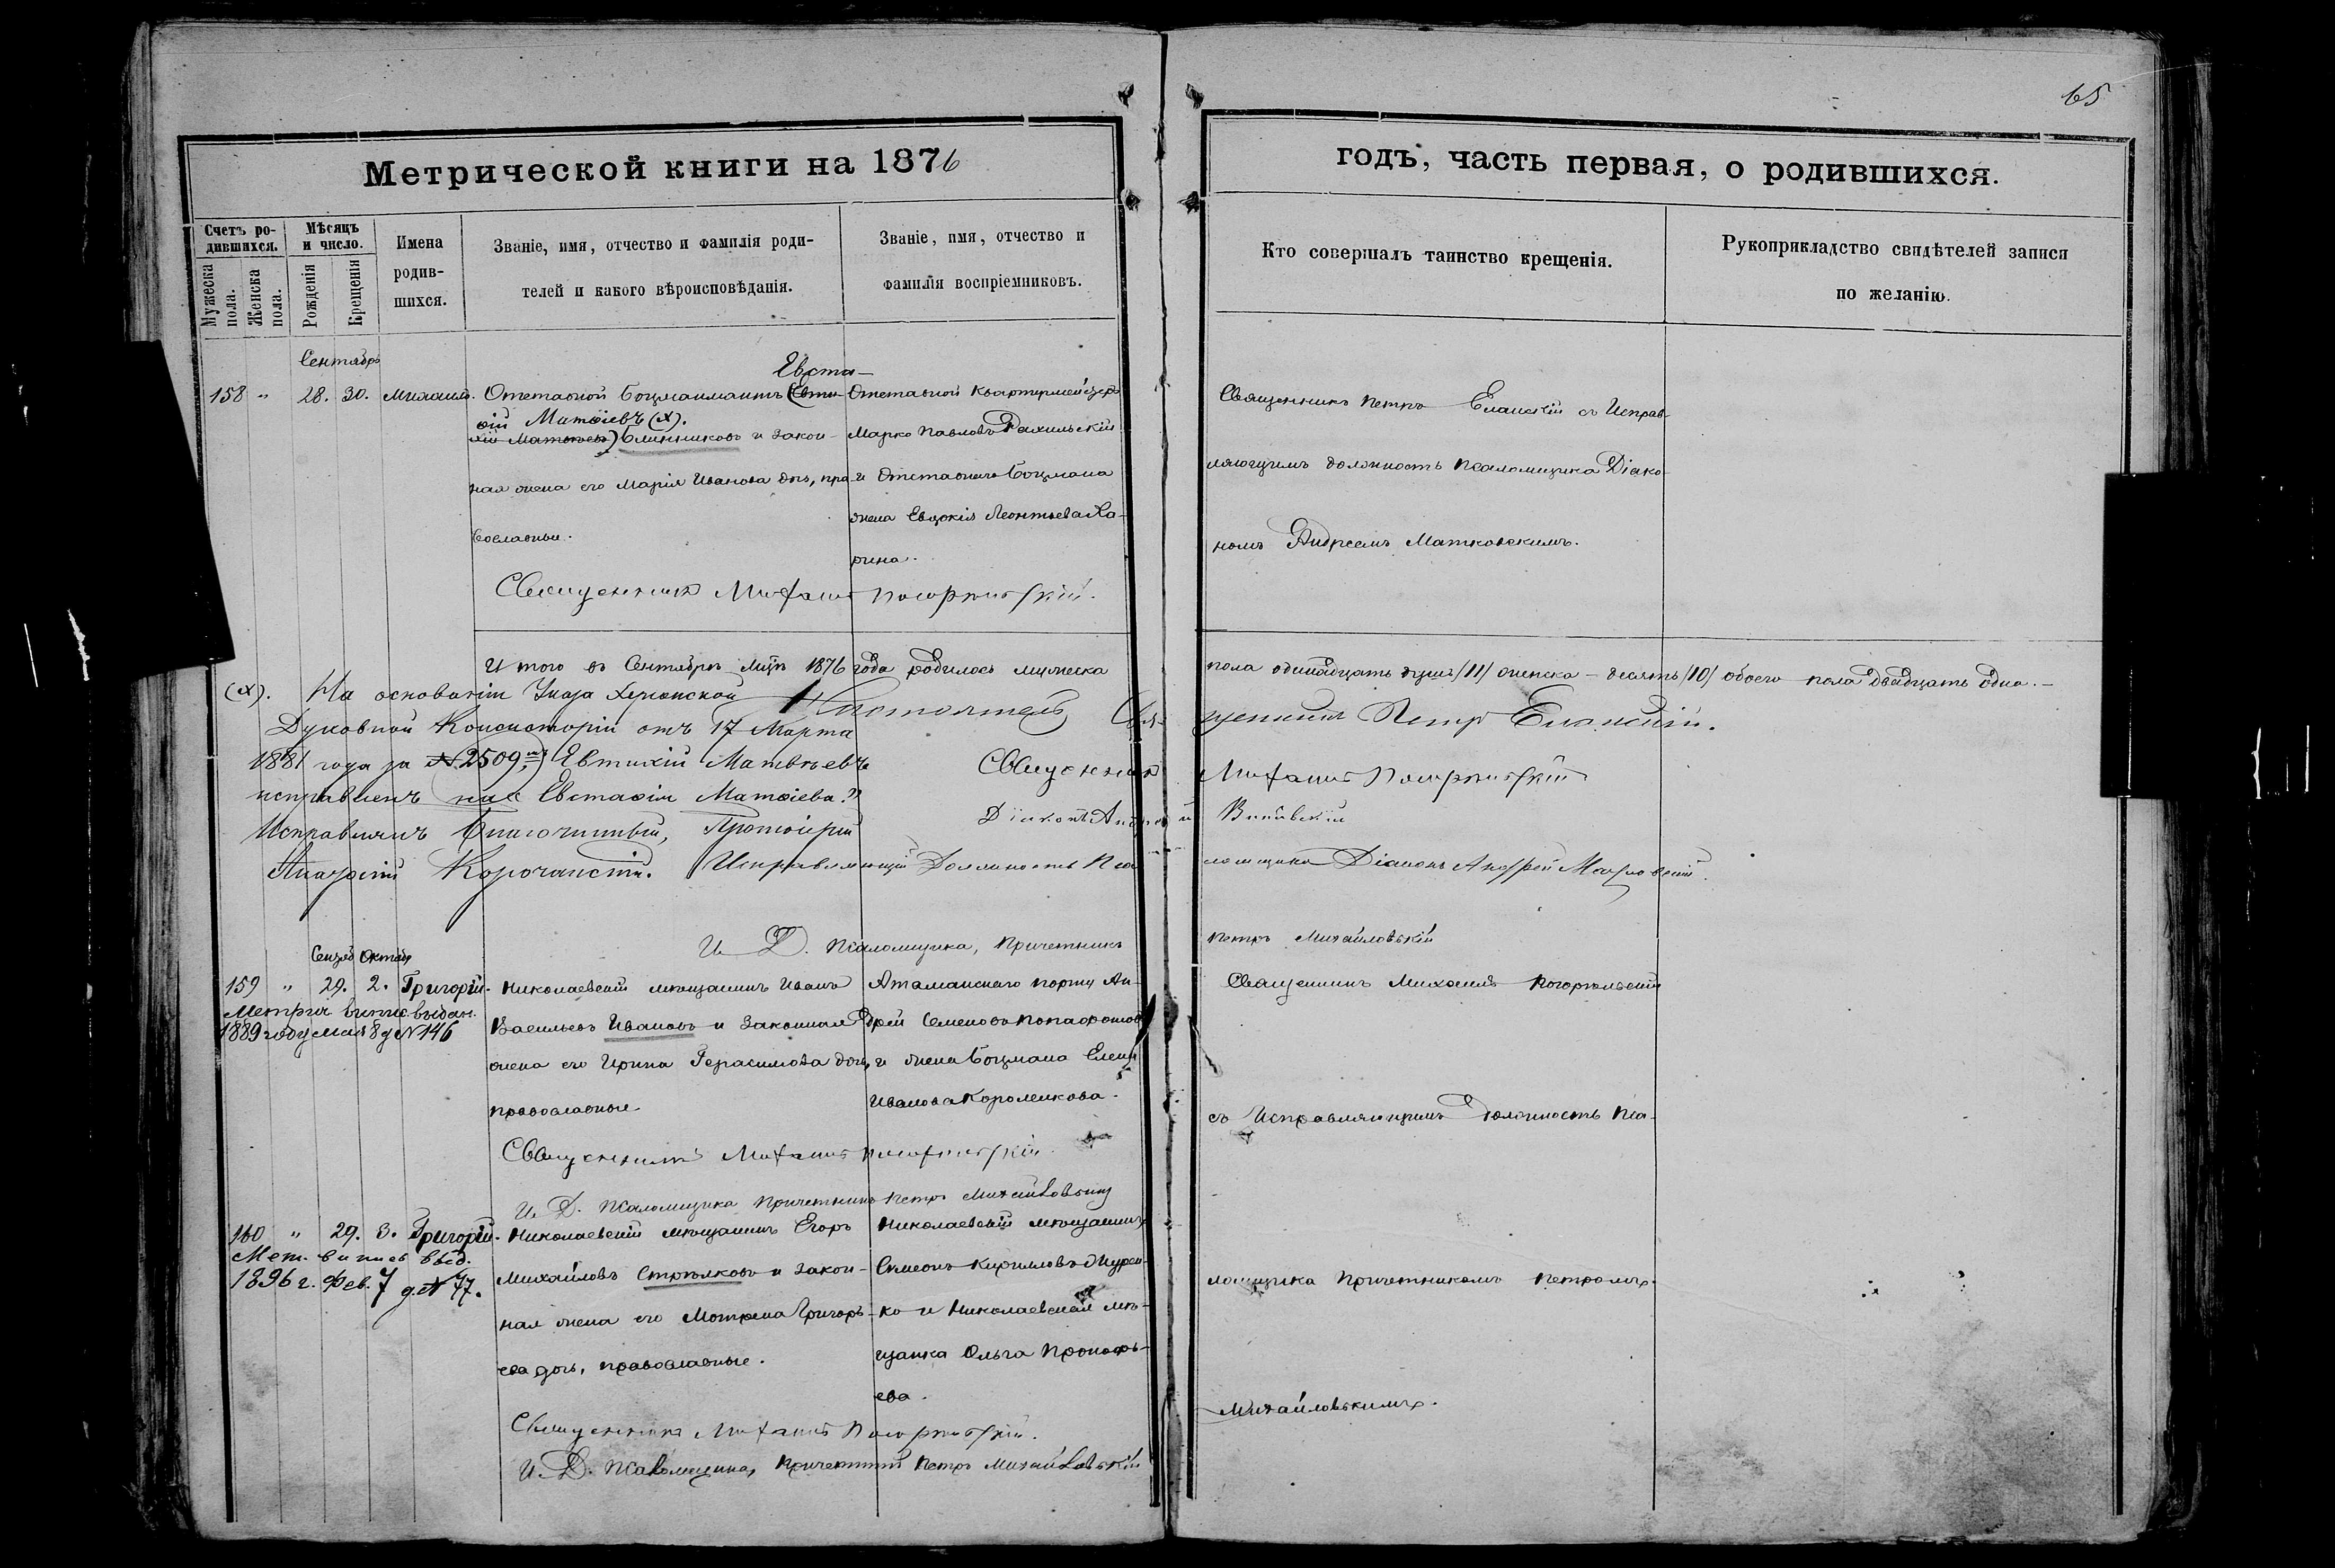 65
Метрической книги на 1876
годъ, часть первая, о родившихся.
Счетъ родившихся.
Мужеска пола.
Женска пола.
Мѣсяцъ и число.
Рожденія
Крещенія
Имена родившихся.
Званіе, имя, отчество и фамилія роди-
телей и какого вѣроисповѣданія.
Званіе, имя, отчество и
фамилія воспріемниковъ.
Кто совершалъ таинство крещенія.
Рукоприкладство свидѣтелей записи
по желанію.
Сентябрь
158 " 28. 30. Михаилъ.
Евста-
Отставной Боцманматъ (Евти-
фій Матѳіевъ (х).
хій Матвѣевъ) Блинниковъ и закон-
ная жена его Марія Иванова дочь, пра-
вославные.
Отставной Квартирмейстеръ
Марко Павловъ Рахильскій
и Отставного Боцмана
жена Евдокія Леонтьева Ха-
рина.
Священникъ Петръ Еланскій съ Исправ-
ляющимъ должность псаломщика Діако-
номъ Андреемъ Матковскимъ.
Священникъ Михаилъ Погорѣльскій.
И того въ Сентябрѣ м-цѣ 1876 года родилось мужеска
пола одинадцать душъ /11/ женска – десять /10/ обоего пола двадцать одна. –
(х). На основаніи Указа Херсонской
Духовной Консисторіи отъ 17 Марта
1881 года за №2509, Евтихій Матвѣевъ
исправленъ на Евстафія Матѳіева."
Исправлялъ Благочинный, Протоіерей
Настоятель Свя-
щенникъ Петръ Еланскій.
Священникъ Михаилъ Погорѣльскій
Діаконъ Андрей
Исправляющій Должность Пса-
ломщика Діаконъ Андрей Матковскій.
И. Д. псаломщика, причетникъ
Петръ Михайловскій
Сентяб Октябр
159 " 29. 2. Григорій.
Метрич. выпис. выдан.
1889 году мая 8 д №146
Николаевскій мѣщанинъ Иванъ
Васильевъ Ивановъ и законная
жена его Ирина Герасимова дочь,
православные.
Атаманскаго порту Ан-
дрей Семеновъ
и жена Боцмана Елена
Иванова Короленкова.
Священникъ Михаилъ Погорѣльскій
съ Исправляющимъ должность пса-
ломщика причетникомъ Петромъ
Михайловскимъ.
Священникъ Михаилъ Погорѣльскій.
И. Д. псаломщика причетникъ Петръ Михайловскій
160 " 29. 3. Григорій.
Мет. выпись выд.
1896 г. Фев. 7 д. № 77.
Николаевскій мѣщанинъ Егоръ
Михайловъ Стрѣлковъ и закон-
ная жена его Мотрона Григорь-
ева дочь, православные.
Николаевскій мѣщанинъ
Симеонъ Кириловъ
ко и Николаевская мѣ-
щанка Ольга Прокофь-
ева.
Священникъ Михаилъ Погорѣльскій.
И. Д. псаломщика, причетникъ Петръ Михайловскій